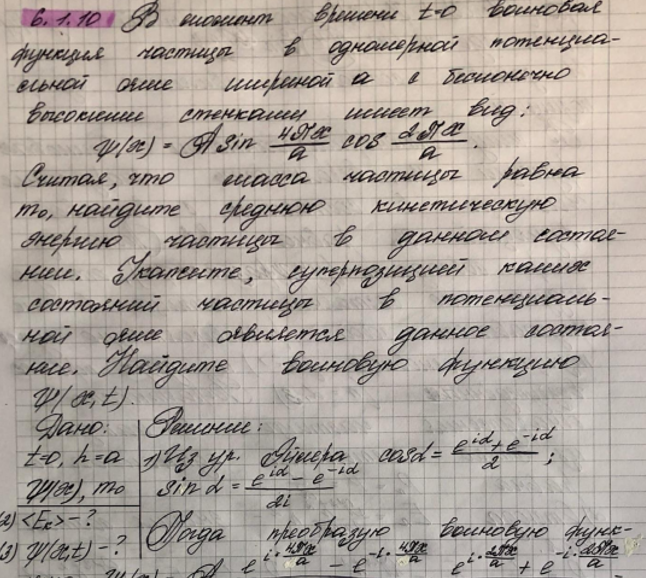 6.1.10 В момент времени t=0 волновая
функция частицы в одномерной потенциа-
льной яме шириной a с бесконечно
высокими стенками имеет вид:
ψ(x) = A sin 4πx/a cos 2πx/a .
Считая, что масса частицы равна
m₀, найдите среднюю кинетическую
энергию частицы в данном состоя-
нии. Укажите, суперпозицией каких
состояний частицы в потенциаль-
ной яме является данное состоя-
ние. Найдите волновую функцию
ψ(x,t).
Дано: Решение:
t=0, h=a 1) Из ур. Эйлера cosα = (e^{iα} + e^{-iα})/2 ;
ψ(x), m₀ sin α = (e^{iα} - e^{-iα})/2i
2) <Eₖ> - ?
3) ψ(x,t) - ? Тогда преобразую волновую функ-
e^{i·4πx/a} - e^{-i·4πx/a} e^{i·2πx/a} + e^{-i·2πx/a}